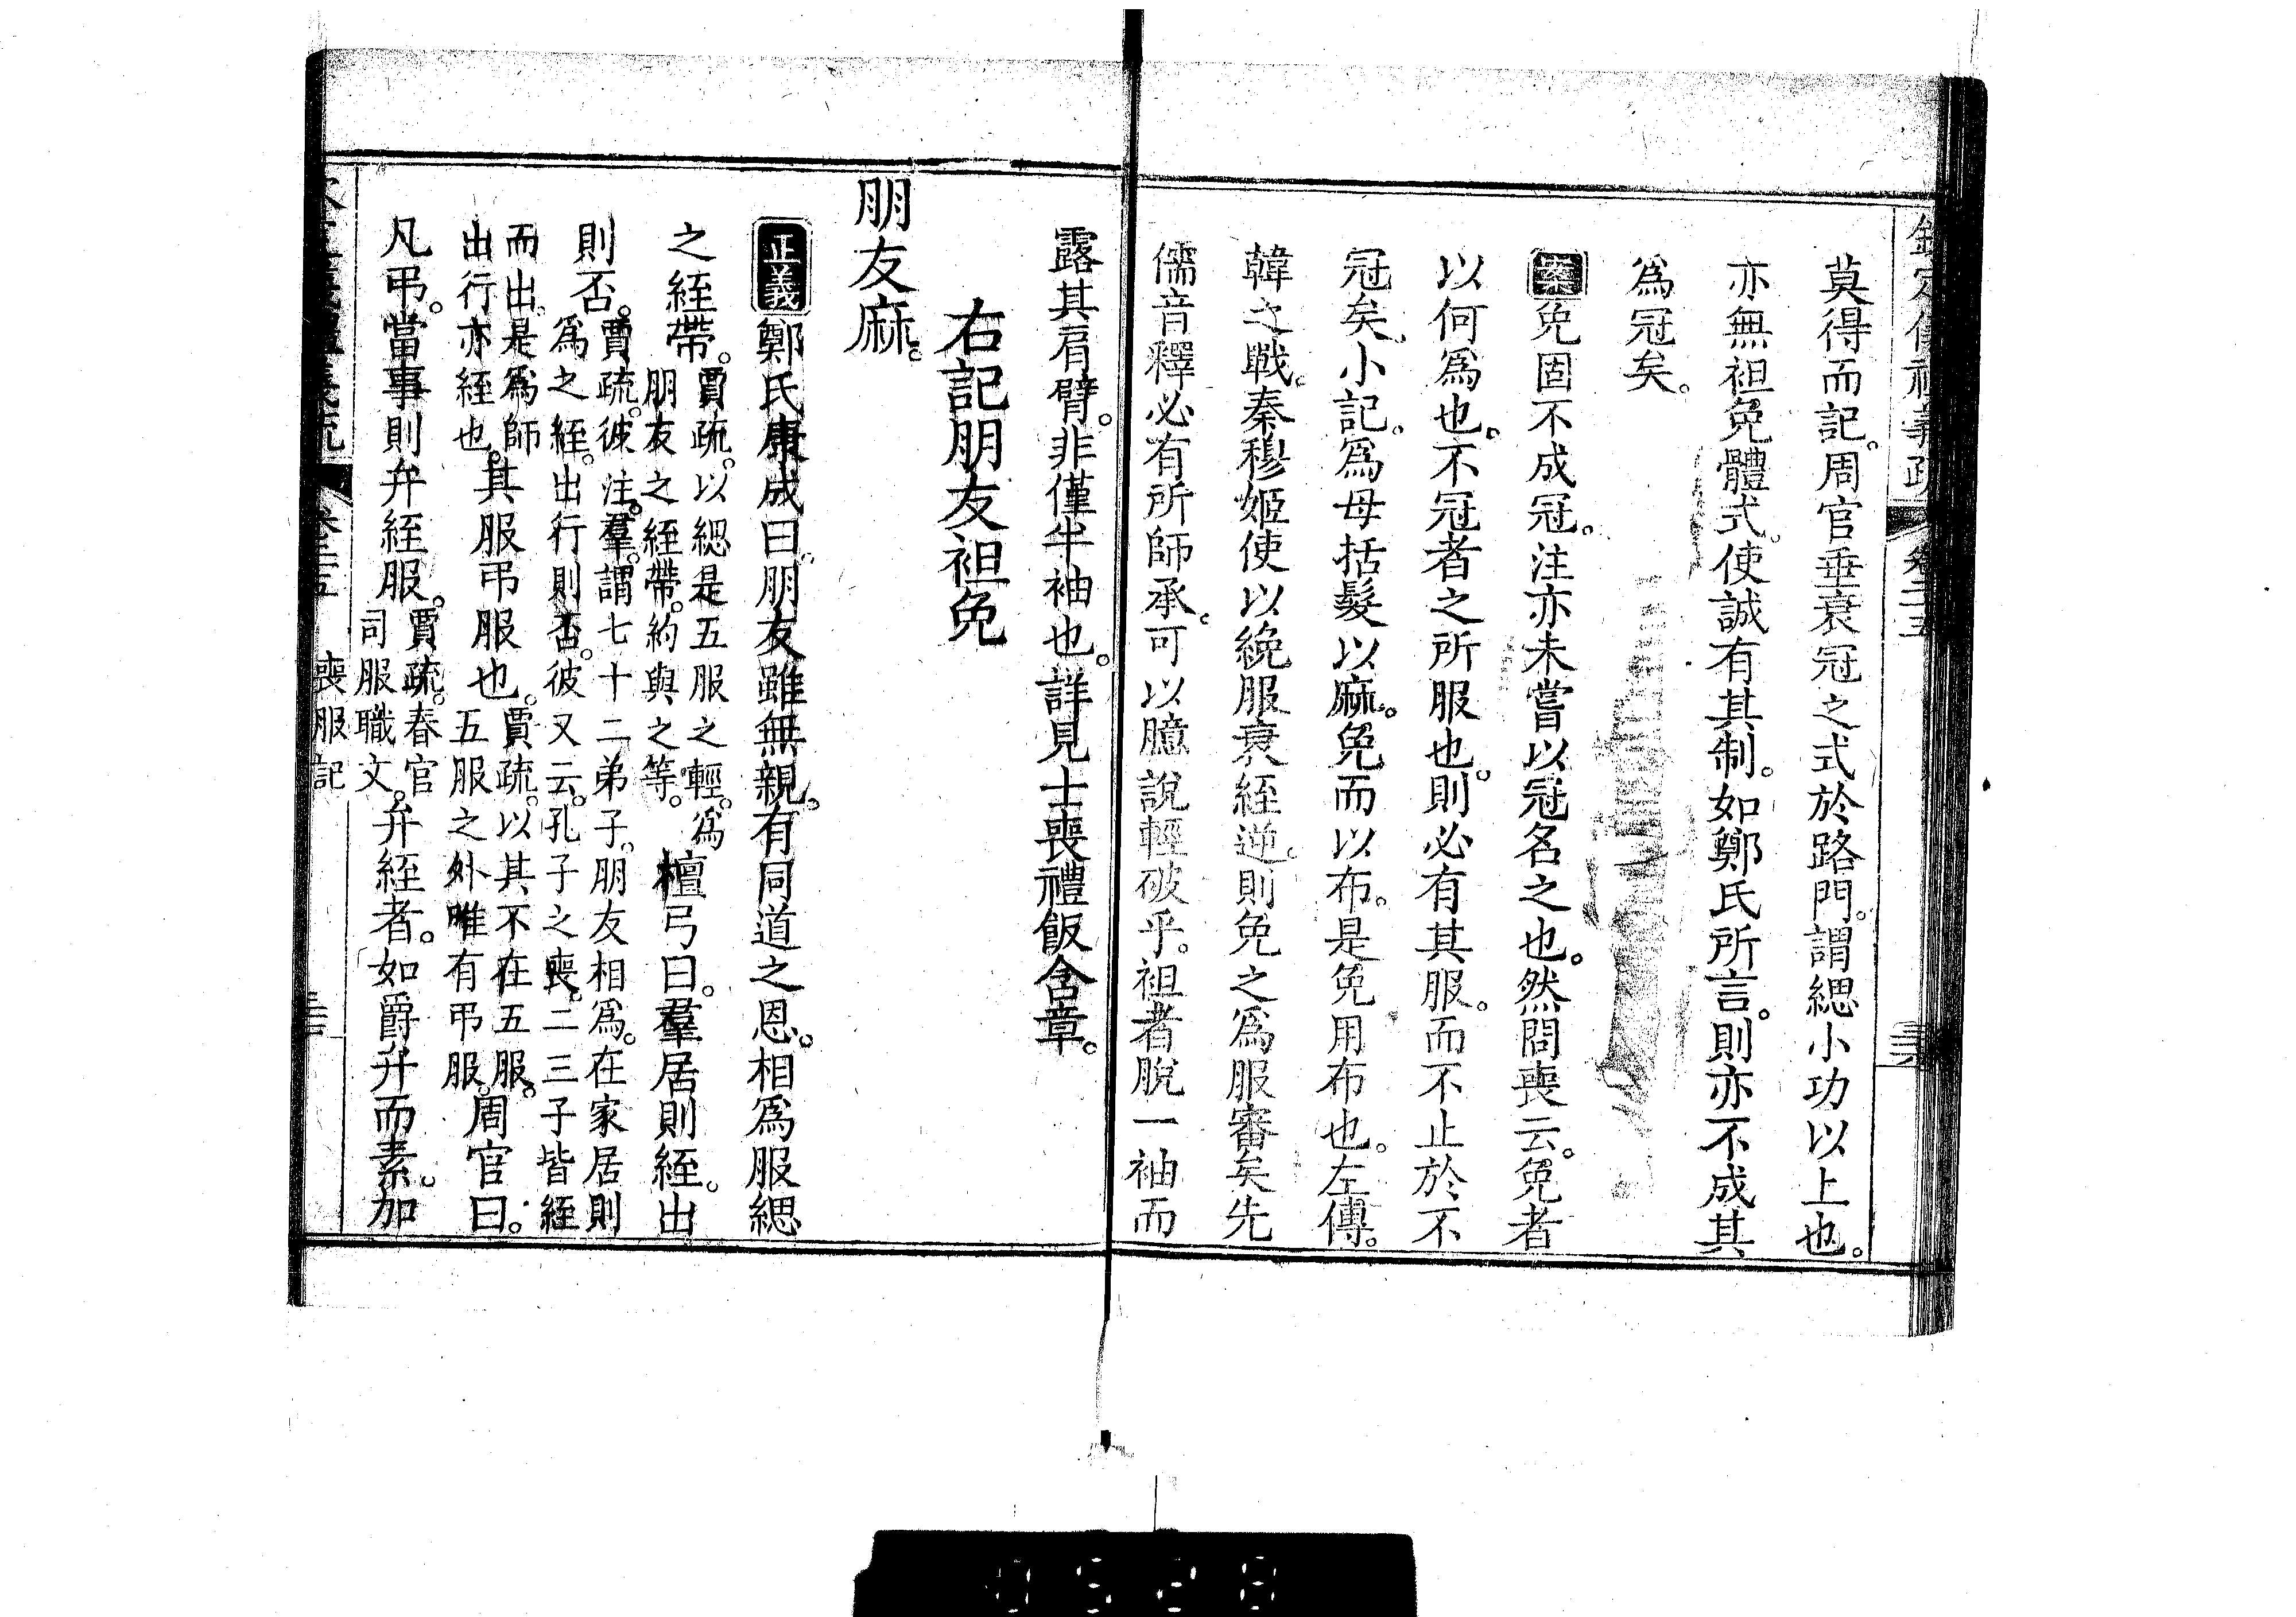 欽定儀禮義疏 卷二十五
莫得而記。周官垂衰冠之式於路門。謂緦小功以上也。
亦無袒免體式。使誠有其制。如鄭氏所言。則亦不成其
爲冠矣。
案免固不成冠。注亦未嘗以冠名之也。然問喪云。免者
以何爲也。不冠者之所服也。則必有其服。而不止於不
冠矣。小記。爲母括髮以麻。免而以布。是免用布也。左傳。
韓之戰。秦穆姬使以絻服衰絰逆。則免之爲服審矣先
儒音釋必有所師承。可以臆說輕破乎。袒者脫一袖而
露其肩臂。非僅半袖也。詳見士喪禮飯含章。
右記朋友袒免
朋友麻。
正義鄭氏康成曰。朋友雖無親。有同道之恩。相爲服緦
之絰帶。賈疏。以緦是五服之輕。爲朋友之絰帶。約與之等。檀弓曰。羣居則絰。出
則否。賈疏。彼注。羣。謂七十二弟子。朋友相爲。在家居則爲之絰。出行則否。彼又云。孔子之喪。二三子皆絰
而出。是爲師出行亦絰也。其服弔服也。賈疏。以其不在五服。五服之外。唯有弔服。周官曰。
凡弔。當事則弁絰服。賈疏。春官司服職文。弁絰者。如爵弁而素。加
喪服記